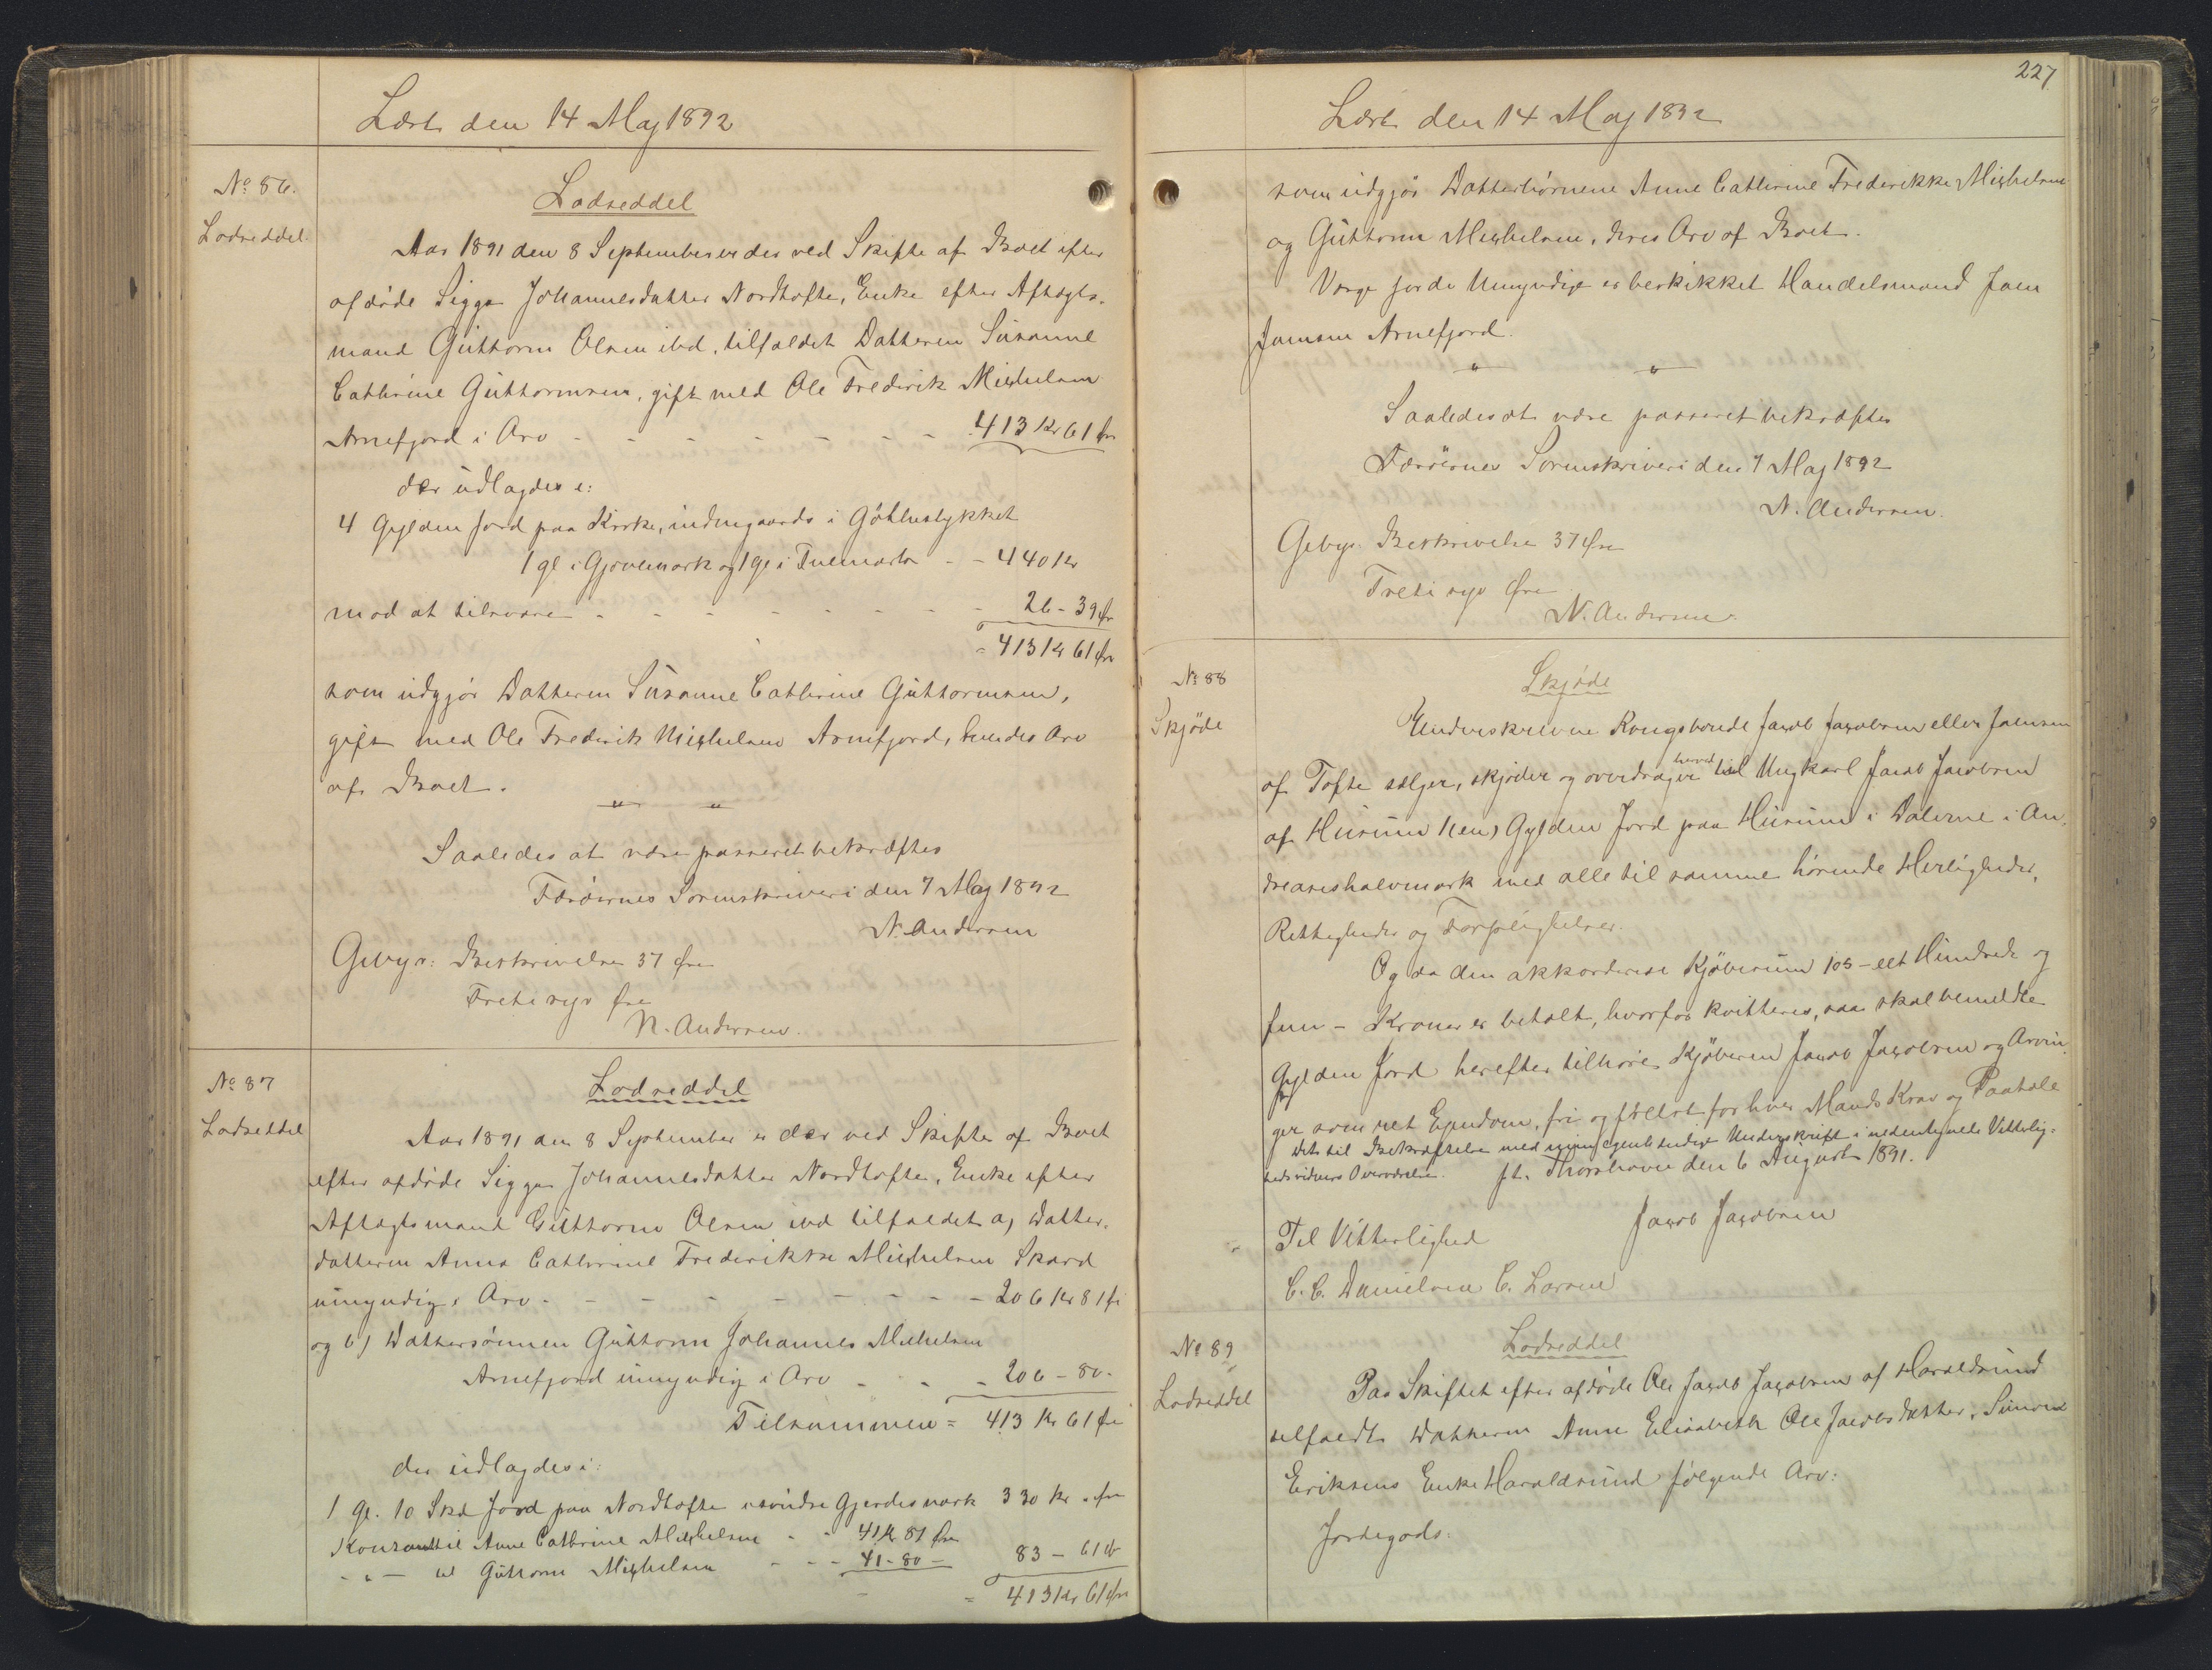 Læst den 14 Maj 1892
No 86.
Lodseddel
Lodseddel
Aar 1891 den 8 September er der ved Skifte af Boet efter
afdøde Sigga Johannesdatter Nordtofte, Enke efter Aftægts-
mand Guttorm Olsen ibd. tilfaldet Datteren Susanne
Cathrine Guttormsen, gift med Ole Frederik Michelsen
Arnefjord i Arv - - - - - - 413 Kr 61 Øre
der udlagdes i:
4 Gylden Jord paa Kirke, indengaards i Gøthestykket
1 gl i Gjøvemørk og 1 gl i Tvemørk - - 440 Kr
mod at tilsvare - - - - - 26 - 39 Ør
= 413 Kr 61 Øre
som udgjør Datteren Susanne Cathrine Guttormsen,
gift med Ole Frederik Michelsen Arnefjord, hendes Arv
af Boet.
" "
Saaledes at være passeret bekræftes
Færøernes Sorenskriveri den 7 Maj 1892
N. Andersen
Gebyr: Beskrivelse 37 Øre
Treti syv Øre
N. Andersen.
No 87
Lodseddel
Lodseddel
Aar 1891 den 8 September er der ved Skifte af Boet
efter afdøde Sigga Johannesdatter Nordtofte, Enke efter
Aftægtsmand Guttorm Olsen ibd tilfaldet a) Datter-
datteren Anna Cathrine Frederikke Michelsen Skard
umyndig i Arv - - - - - - - 206 Kr 81 Ør
og b) Dattersønnen Guttorm Johannes Michelsen
Arnefjord umyndig i Arv - - - 206 - 80 -
Tilsammen = 413 Kr 61 Øre
der udlagdes i:
1 Gl. 10 Skd Jord paa Nordtofte i søndre Gjerdesmørk 330 Kr " Øre
Kontant til Anne Cathrine Michelsen - - 41 Kr 81 Øre
- " - til Guttorm Michelsen - - - 41 - 80 - 83 - 61 Ør
= 413 Kr 61 Øre
227
Læst den 14 Maj 1892
som udgjør Datterbørnene Anne Cathrine Frederikke Michelsen
og Guttorm Michelsen, deres Arv af Boet.
Værge for de Umyndige er beskikket Handelsmand Joen
Joensen Arnefjord.
" "
Saaledes at være passeret bekræftes
Færøernes Sorenskriveri den 7 Maj 1892
N. Andersen.
Gebyr. Beskrivelse 37 Øre
Treti syv Øre
N. Andersen.
No 88
Skjøde
Skjøde
Underskrevne Kongsbonde Jacob Jacobsen eller Joensen
af Tofte sælger, skjøder og overdrager herved til Ungkarl Jacob Jacobsen
af Husum 1 (en) Gylden Jord paa Husum i Dalerne i An-
dreaseshalvmørk med alle til samme hørende Herligheder,
Rettigheder og Forpligtelser.
Og da den akkorderede Kjøbesum 105 - eet Hundrede og
fem - Kroner er betalt, hvorfor kvitteres, saa skal bemeldte
Gylden Jord herefter tilhøre Kjøberen Jacob Jacobsen og Arvin-
ger som ret Ejendom, fri og frelst for hver Mands Krav og Paatale
Dets til Bekræftelse med min egenhændige Underskrift i nedentegnede Vitterlig-
hedsvidners Overværelse. pt. Thorshavn den 6 August 1891.
Jacob Jacobsen
Til Vitterlighed
C. C. Danielsen C. Larsen
No 89
Lodseddel
Lodseddel
Paa Skiftet efter afdøde Ole Jacob Jacobsen af Haraldsund
tilfaldt Datteren Anne Elisabeth Ole Jacobsdatter, Simon
Eriksens Enke Haraldsund følgende Arv:
Jordegods: